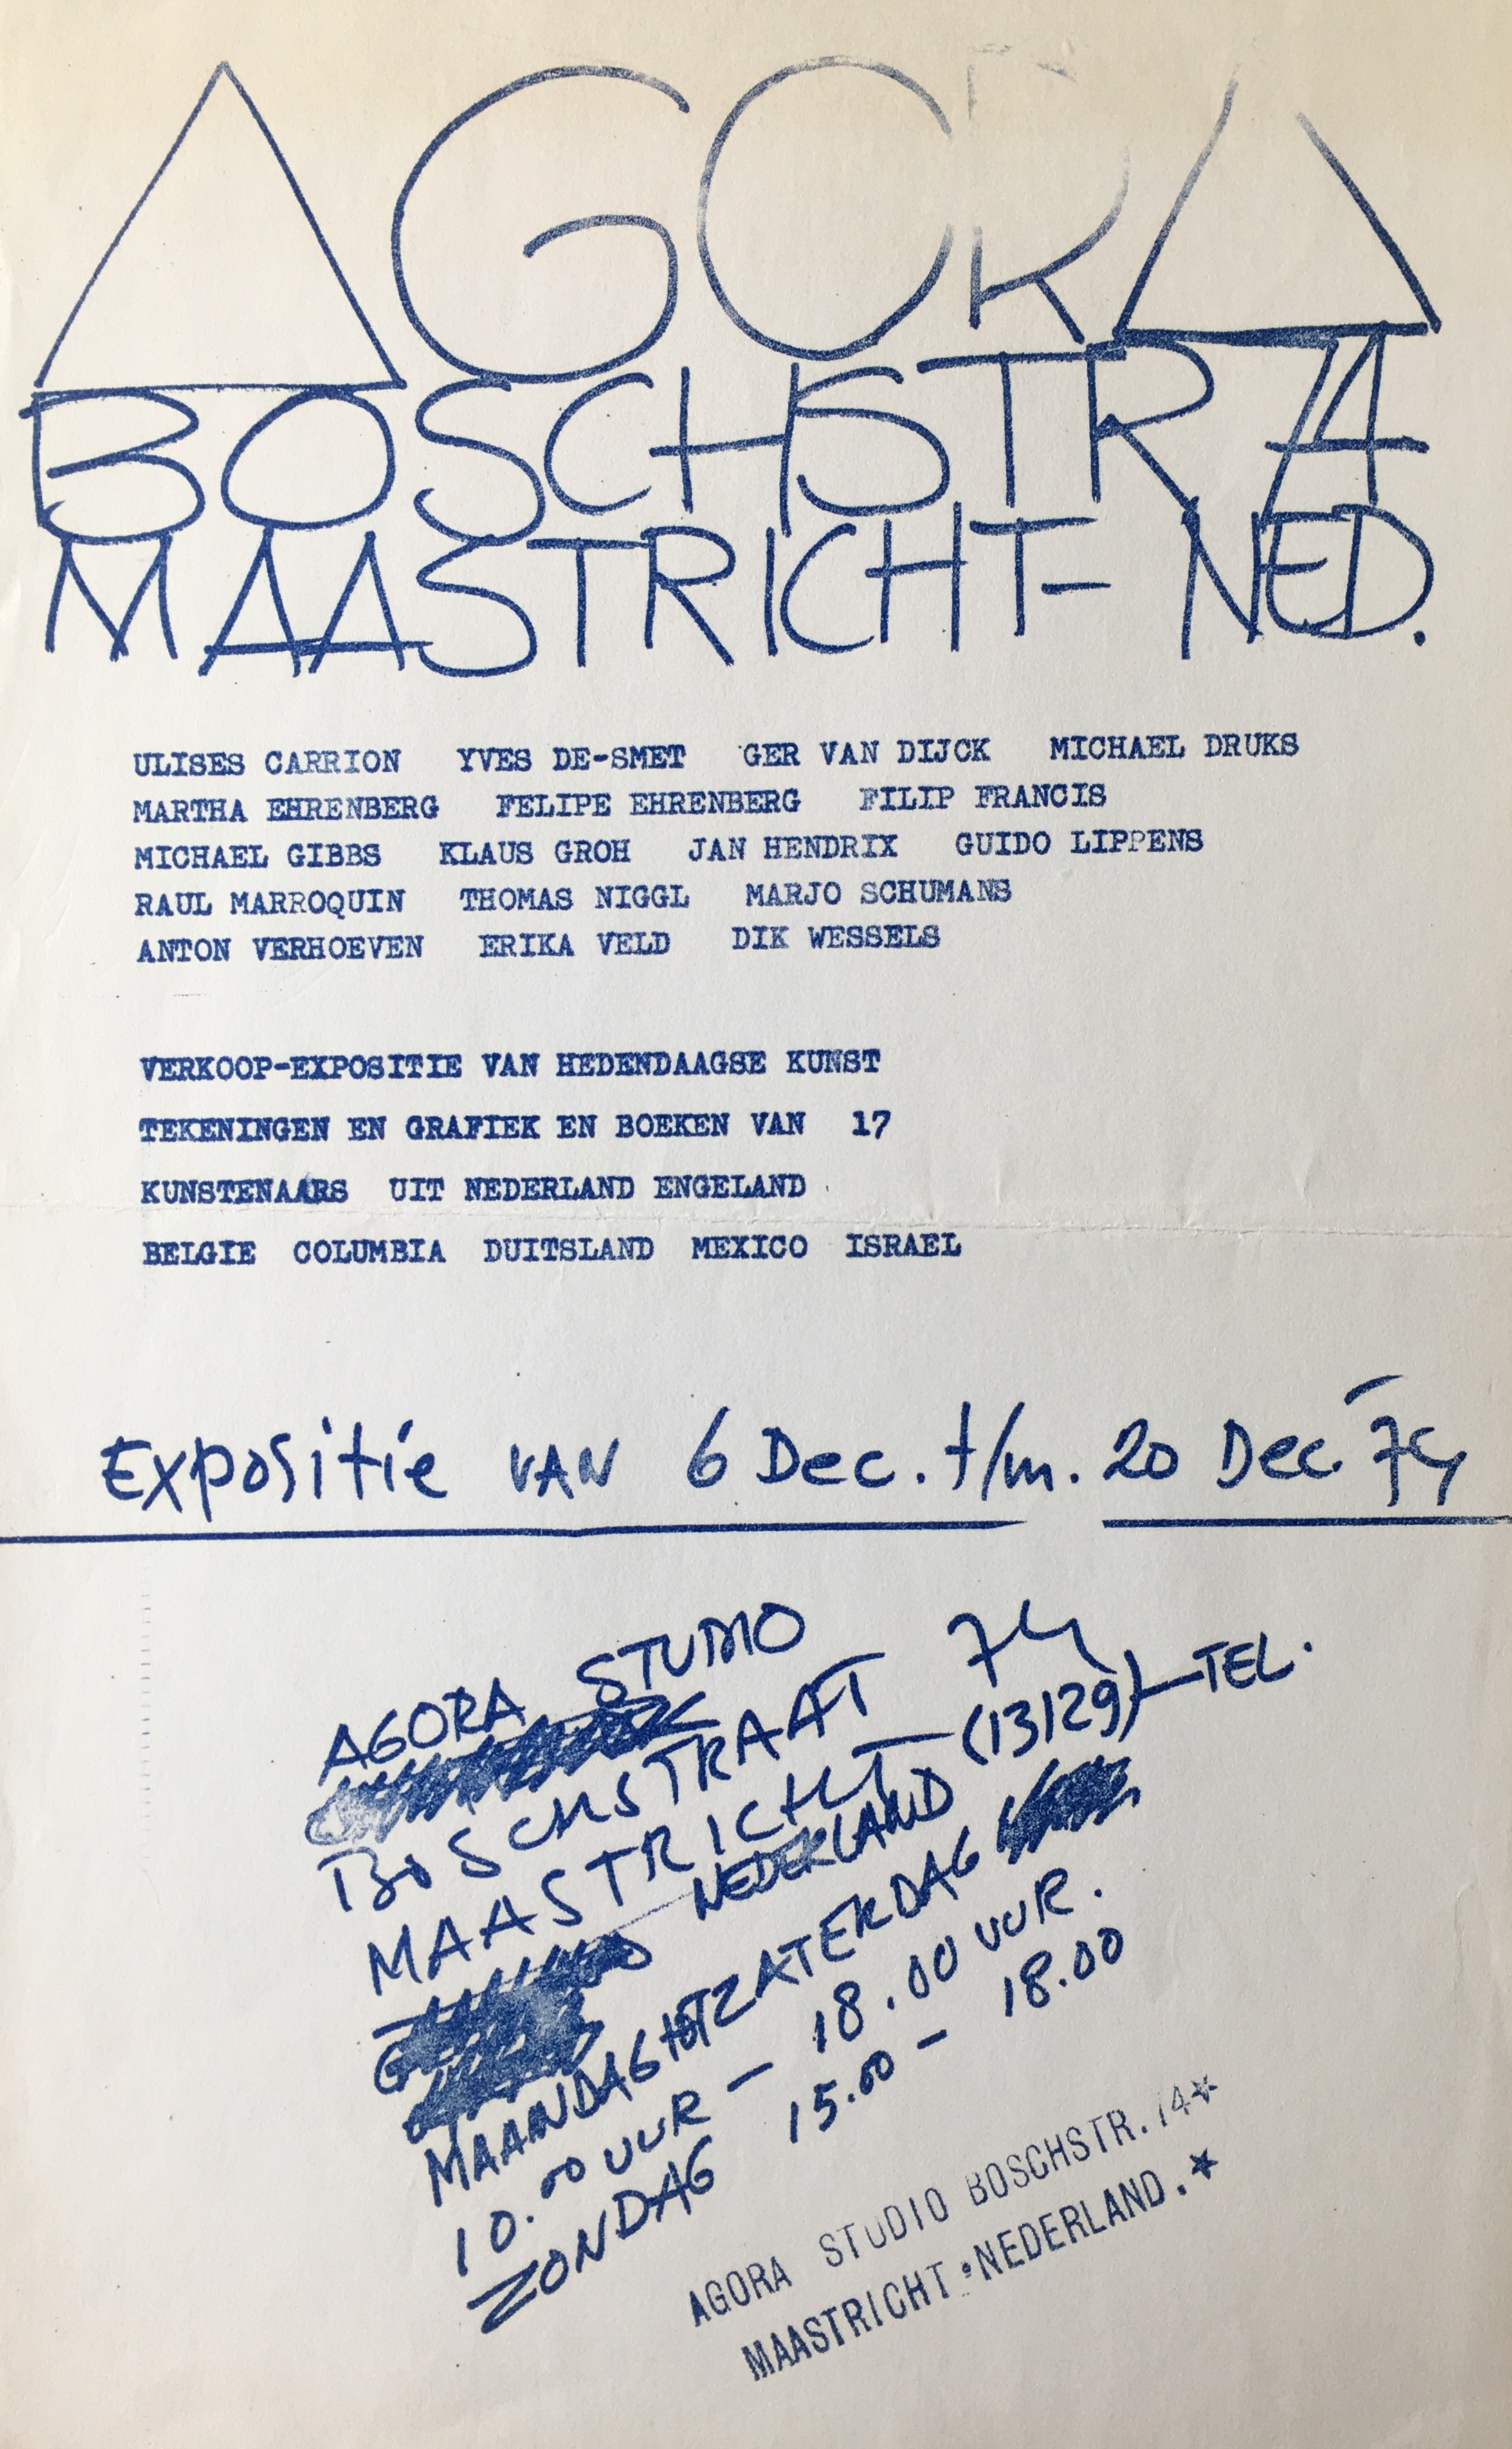 AGORA
BOSCHSTR 74
MAASTRICHT- NED.
ULISES CARRION YVES DE-SMET GER VAN DIJCK MICHAEL DRUKS
MARTHA EHRENBERG FELIPE EHRENBERG FILIP FRANCIS
MICHAEL GIBBS KLAUS GROH JAN HENDRIX GUIDO LIPPENS
RAUL MARROQUIN THOMAS NIGGL MARJO SCHUMANS
ANTON VERHOEVEN ERIKA VELD DIK WESSELS
VERKOOP-EXPOSITIE VAN HEDENDAAGSE KUNST
TEKENINGEN EN GRAFIEK EN BOEKEN VAN 17
KUNSTENAARS UIT NEDERLAND ENGELAND
BELGIE COLUMBIA DUITSLAND MEXICO ISRAEL
Expositie VAN 6 Dec. t/m. 20 Dec '74
AGORA STUDIO
BOSCHSTRAAT 74
MAASTRICHT — (13129) — TEL.
NEDERLAND
MAANDAG tot ZATERDAG
10.00 UUR — 18.00 UUR.
ZONDAG 15.00 — 18.00
AGORA STUDIO BOSCHSTR. 74★
MAASTRICHT • NEDERLAND. ★